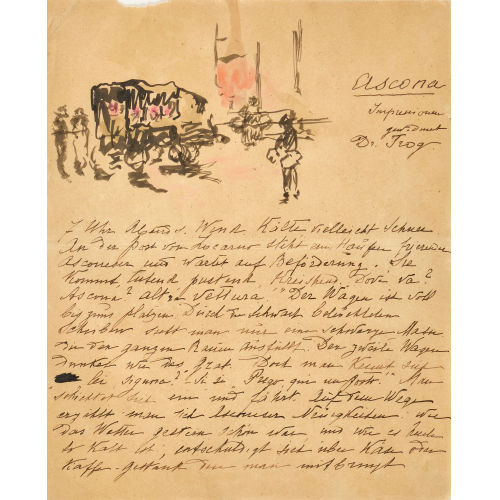 Ascona
Impressionen
gewidmet
Dr. Trog
7 Uhr Abends. Wind, Kälte vielleicht Schnee
An der Post von Locarno steht ein Haufen
Asconesen und wartet auf Beförderung. Sie
kommt, tutend pustend, kreischend. Dove va?
Ascona? altra vettura." Der Wagen ist voll
bis zum platzen. Durch die schwach beleuchteten
Scheiben sieht man nur eine schwarze Masse
die den ganzen Raum ausfüllt. Der zweite Wagen
dunkel wie das Grab. Doch man kennt sich
lei signora? Si si Prego, qui un posto". Man
schiebt sich ein und fährt. Auf dem Wege
erzählt man sich Asconeser Neuigkeiten: wie
das Wetter gestern schön war und wie es heute
so kalt ist, entschuldigt sich über Käse oder
Kaffe-gestank den man mitbringt